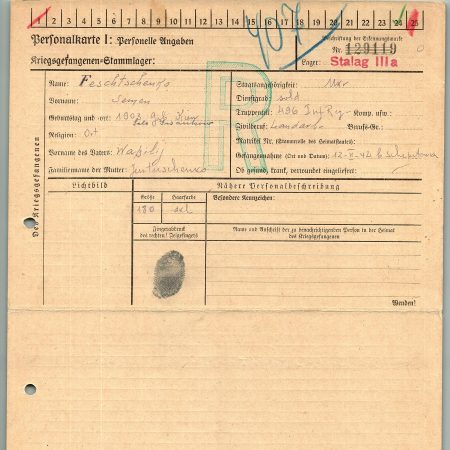 1 2 3 4 5 6 7 8 9 10 11 12 13 14 15 16 17 18 19 20 21 22 23 24 25
907
Personalkarte I: Personelle Angaben
Beschriftung der Erkennungsmarke
Nr. 129119
Kriegsgefangenen-Stammlager:
Lager: Stalag IIIa
Des Kriegsgefangenen
Name: Feschtschenko
Vorname: Semen
Geburtstag und -ort: 1903
Religion: Ort
Vorname des Vaters: Wasilij
Familienname der Mutter:
Staatsangehörigkeit: Ukr
Dienstgrad: sold
Truppenteil: 496 Inf Rg Komp. usw.:
Zivilberuf: Berufs-Gr.:
Matrikel Nr. (Stammrolle des Heimatstaates):
Gefangennahme (Ort und Datum): 12
Ob gesund, krank, verwundet eingeliefert:
R
Lichtbild
Nähere Personalbeschreibung
Größe
Haarfarbe
Besondere Kennzeichen:
180
Fingerabdruck
des rechten! Zeigefingers
Name und Anschrift der zu benachrichtigenden Person in der Heimat
des Kriegsgefangenen
Wenden!